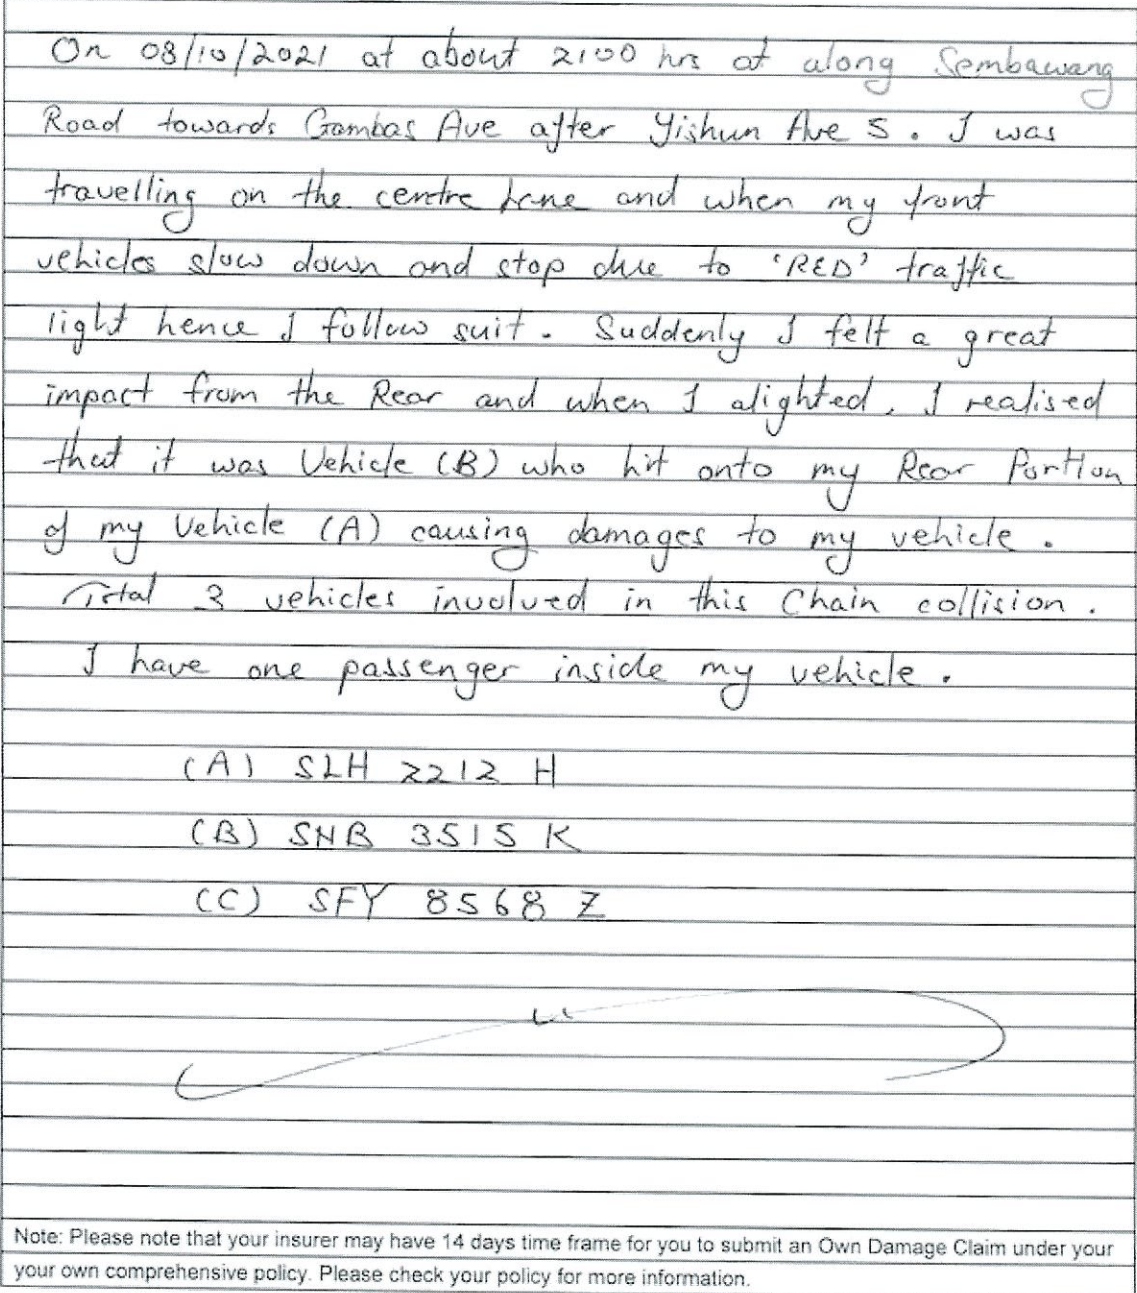 On 08/10/2021 at about 2100 hrs at along Sembawang
Road towards Gambas Ave after Yishun Ave 5. I was
travelling on the centre lane and when my front
vehicles slow down and stop due to 'RED' traffic
light hence I follow suit. Suddenly I felt a great
impact from the Rear and when I alighted, I realised
that it was Vehicle (B) who hit onto my Rear Portion
of my Vehicle (A) causing damages to my vehicle.
Total 3 vehicles involved in this Chain collision.
I have one passenger inside my vehicle.
(A) SLH 2212 H
(B) SNB 3515 K
(C) SFY 8568 Z
Note: Please note that your insurer may have 14 days time frame for you to submit an Own Damage Claim under your
your own comprehensive policy. Please check your policy for more information.